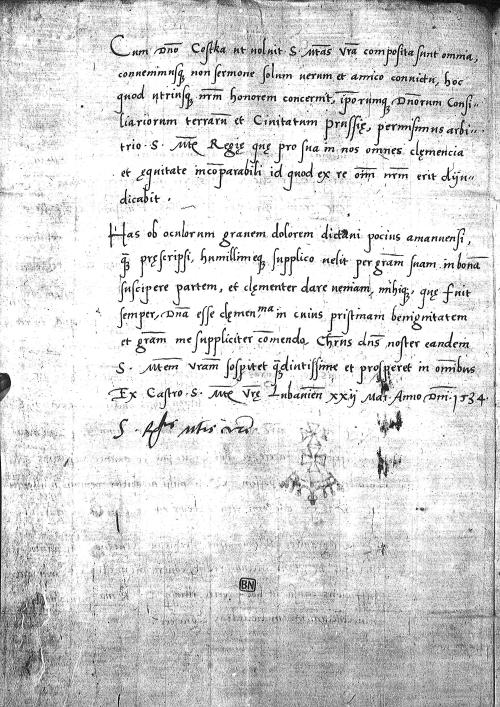 Cum Dno Costka ut voluit S. Mtas Vra composita sunt omnia,
convenimusq, non sermone solum verum et amico convictu, hoc
quod utriusq nrm honorem concernit, ipsorumq Dnorum Consi-
liariorum terrarū et Civitatum Prussię, permisimus arbi-
trio S. Mte Regię quę pro sua in nos omnes clęmencia
et ęquitate incōparabili id quod ex re om̄ nrm erit dijū-
dicabit.
Has ob oculorum gravem dolorem dictavi pocius amanuensi,
q̄ pręscripsi, humillimeq supplico velit per grām suam in bonā
suscipere partem, et clęmenter dare veniam, mihiq, quę fuit
semper, Dnā esse clęmen.ma in cuius pristinam benignitatem
et grām me suppliciter cōmendo, Chrūs dns noster eandem
S. Mtem Vram sospitet q̄diutissime et prosperet in omibus
Ex Castro S. Mte Vrę Lubavien xxij Maj Anno Dni 1534
BN